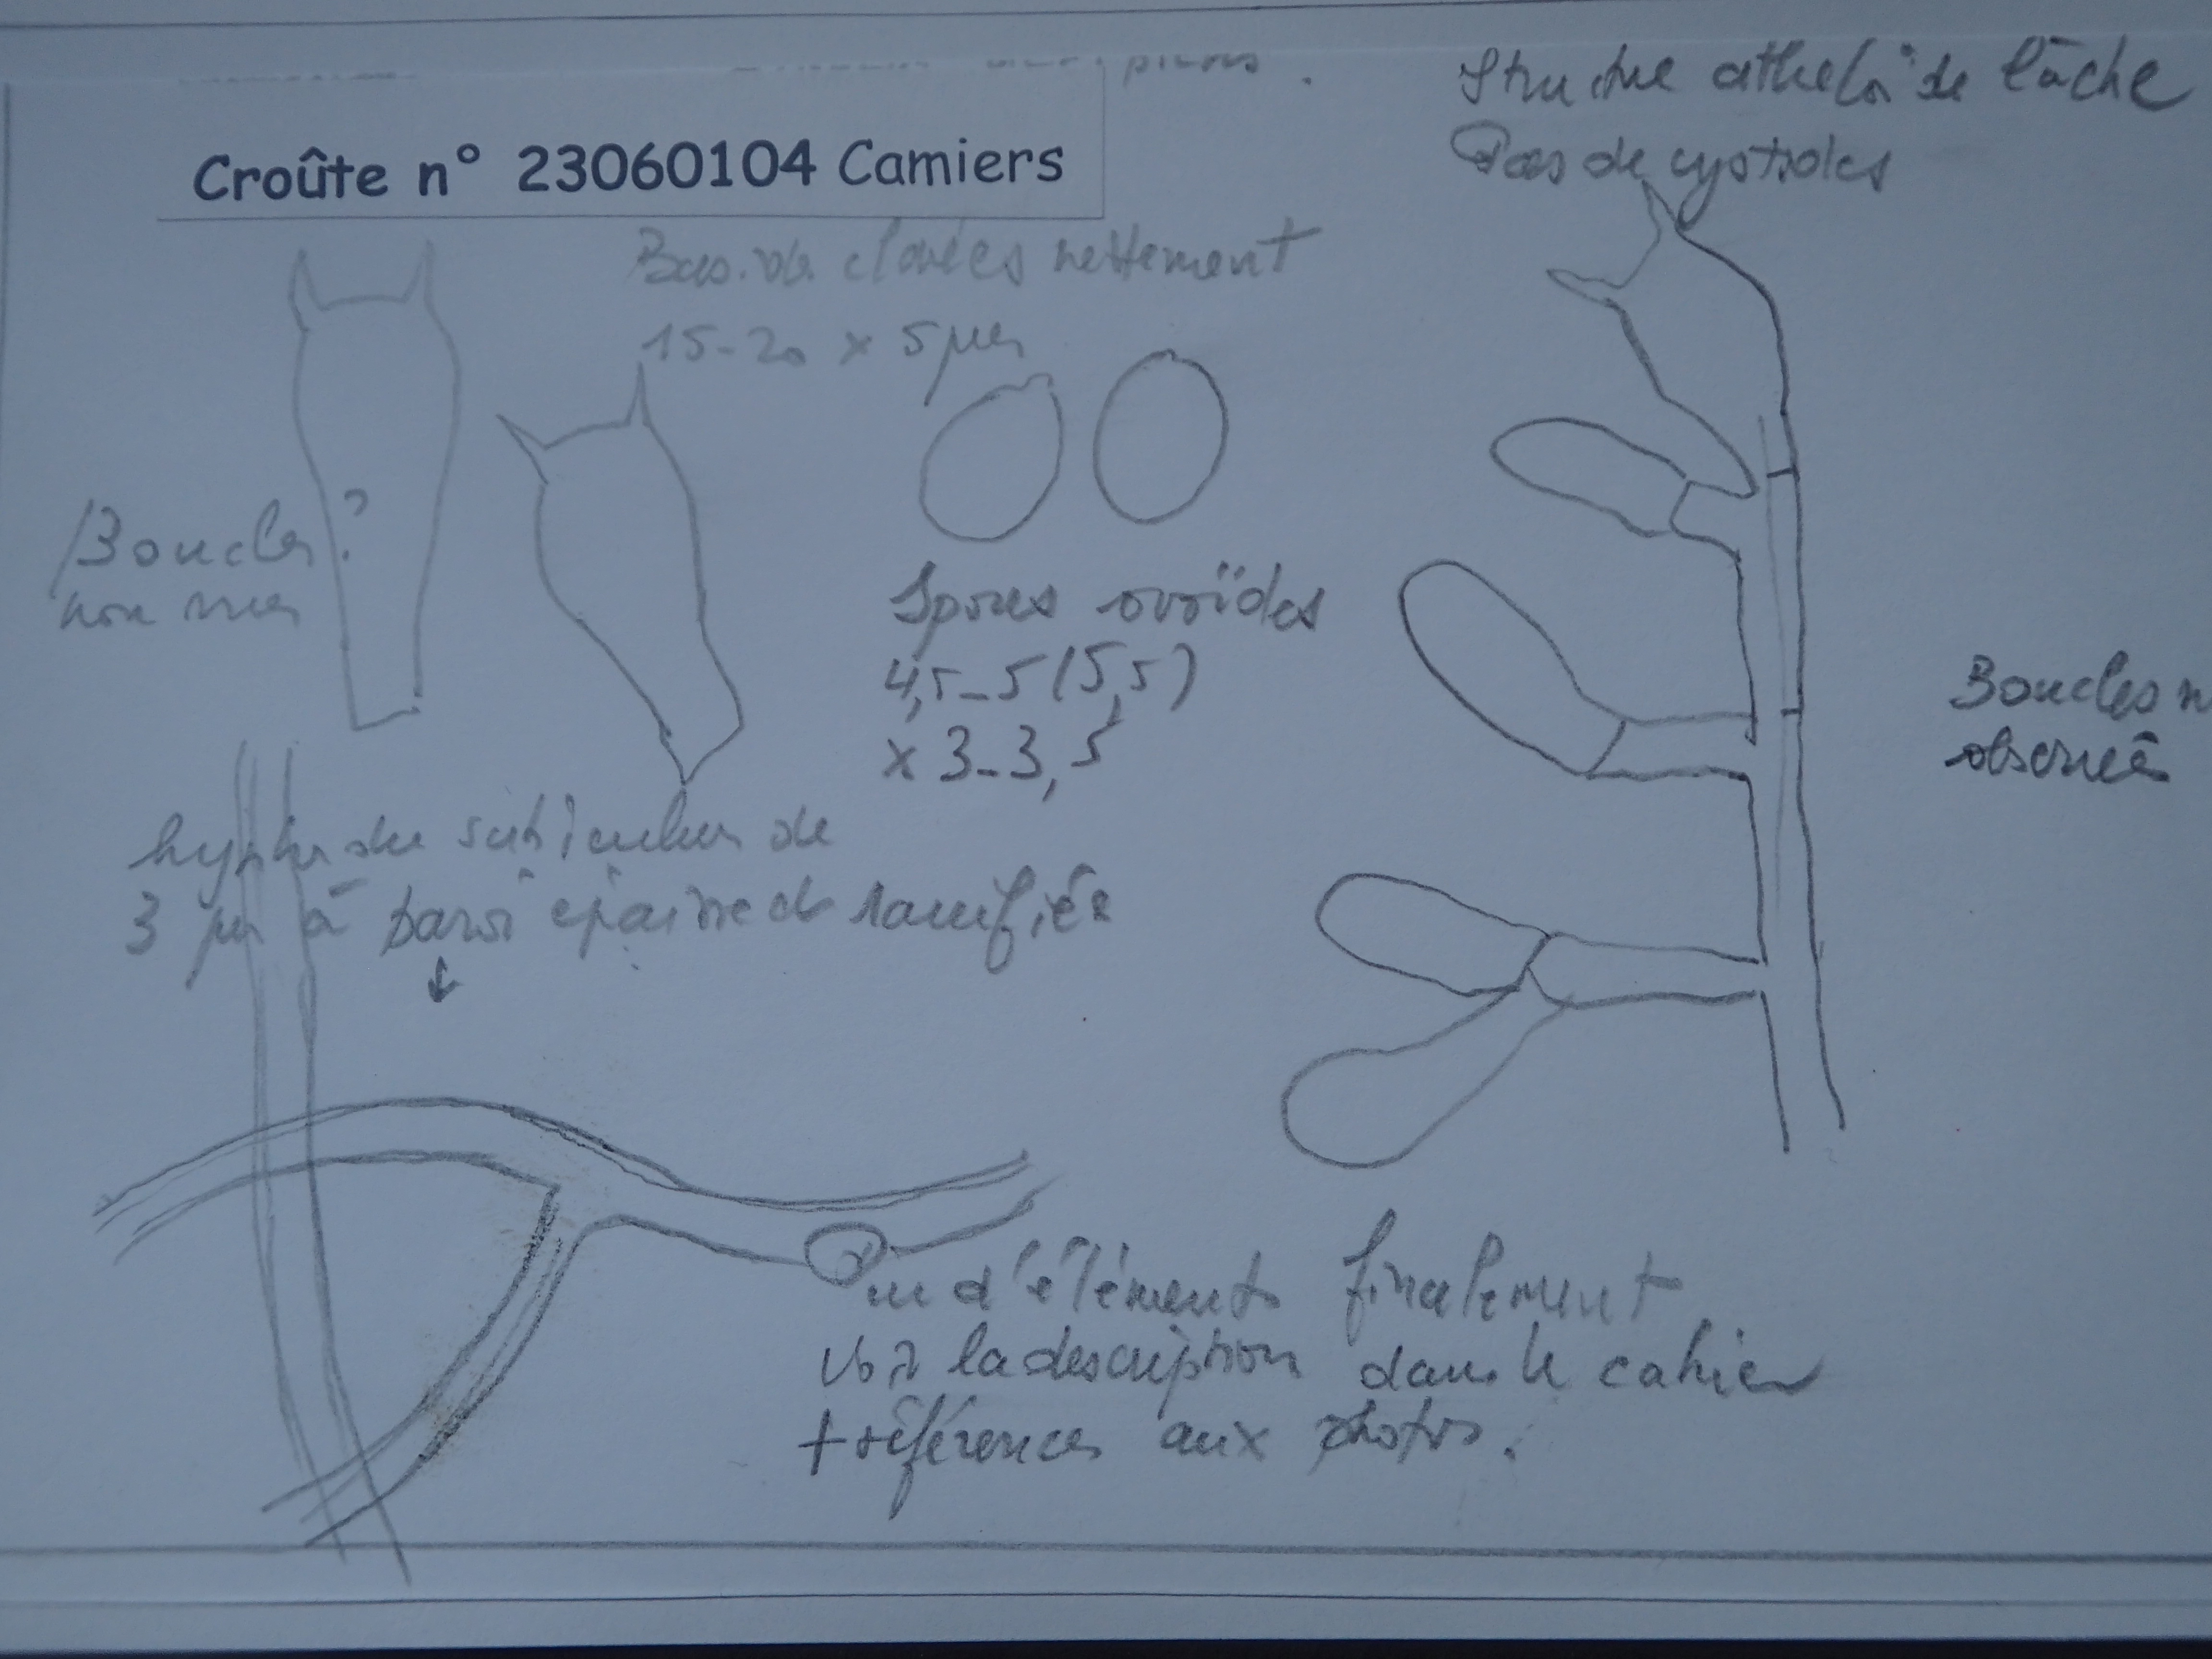 Structue atheloïde lâche
Pas de cystides
Croûte n° 23060104 Camiers
Basid. clavées nettement
15-20 x 5 µm
Boucles ?
non vues
Spores ovoïdes
4,5-5 (5,5)
x 3-3,5
Boucles n
observée
hyphes du subiculum de
3 µm à paroi épaisse et ramifiée
↓
d'éléments finalement
la description dans le cahier
+ références aux photos.